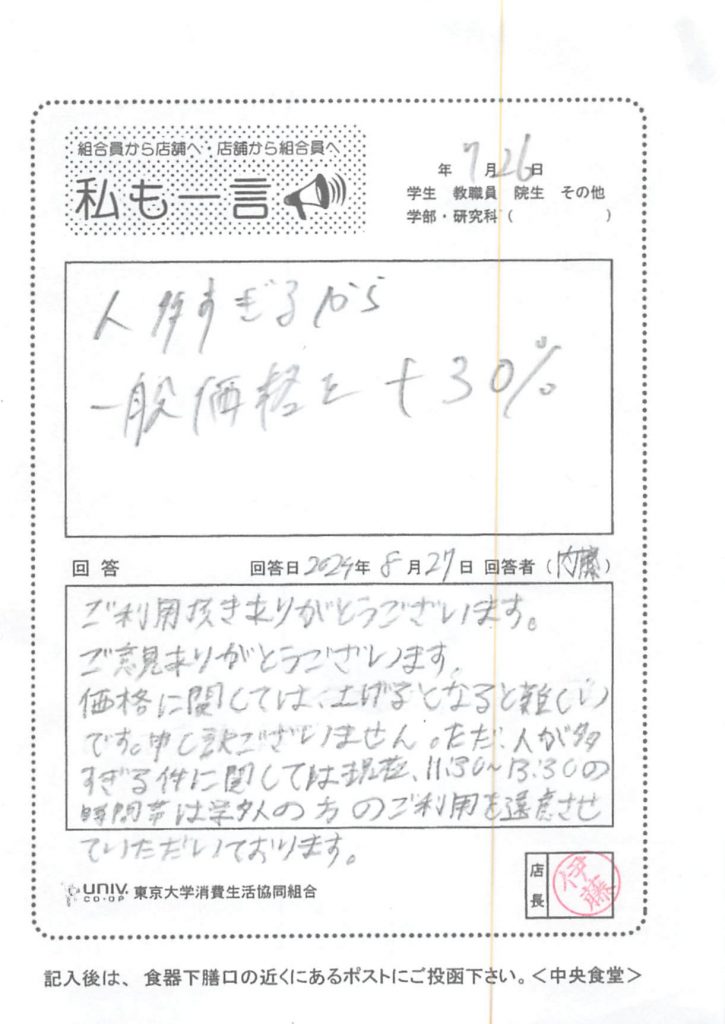 組合員から店舗へ・店舗から組合員へ
私も一言
年 7月26日
学生 教職員 院生 その他
学部・研究科（ ）
人多すぎるから
一般価格を+30%
回答 回答日2024年8月27日 回答者（内藤）
ご利用頂きありがとうございます。
ご意見ありがとうございます。
価格に関しては、上げるとなると難しい
です。申し訳ございません。ただ、人が多
すぎる件に関しては現在、11:30~13:30の
時間帯は学外の方のご利用を遠慮させ
ていただいております。
店長
伊藤
UNIV. CO-OP 東京大学消費生活協同組合
記入後は、食器下膳口の近くにあるポストにご投函下さい。＜中央食堂＞